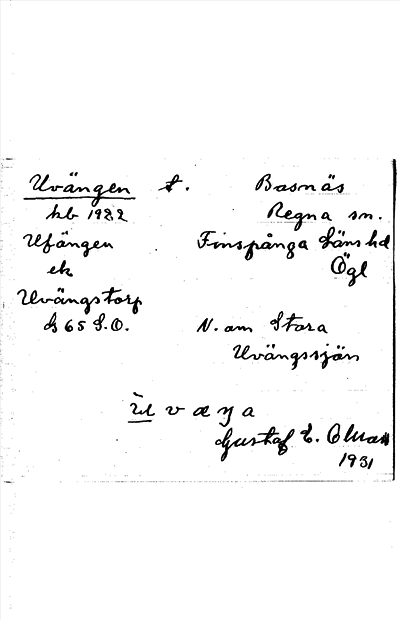 Uvängen t. Basnäs
hb 1922 Regna sn.
Ufängen Finspånga Läns hd
ek Ögl
Uvängstorp
G 65 S.O. N. om Stora
Uvängssjön
Gustaf E. Olman
1931